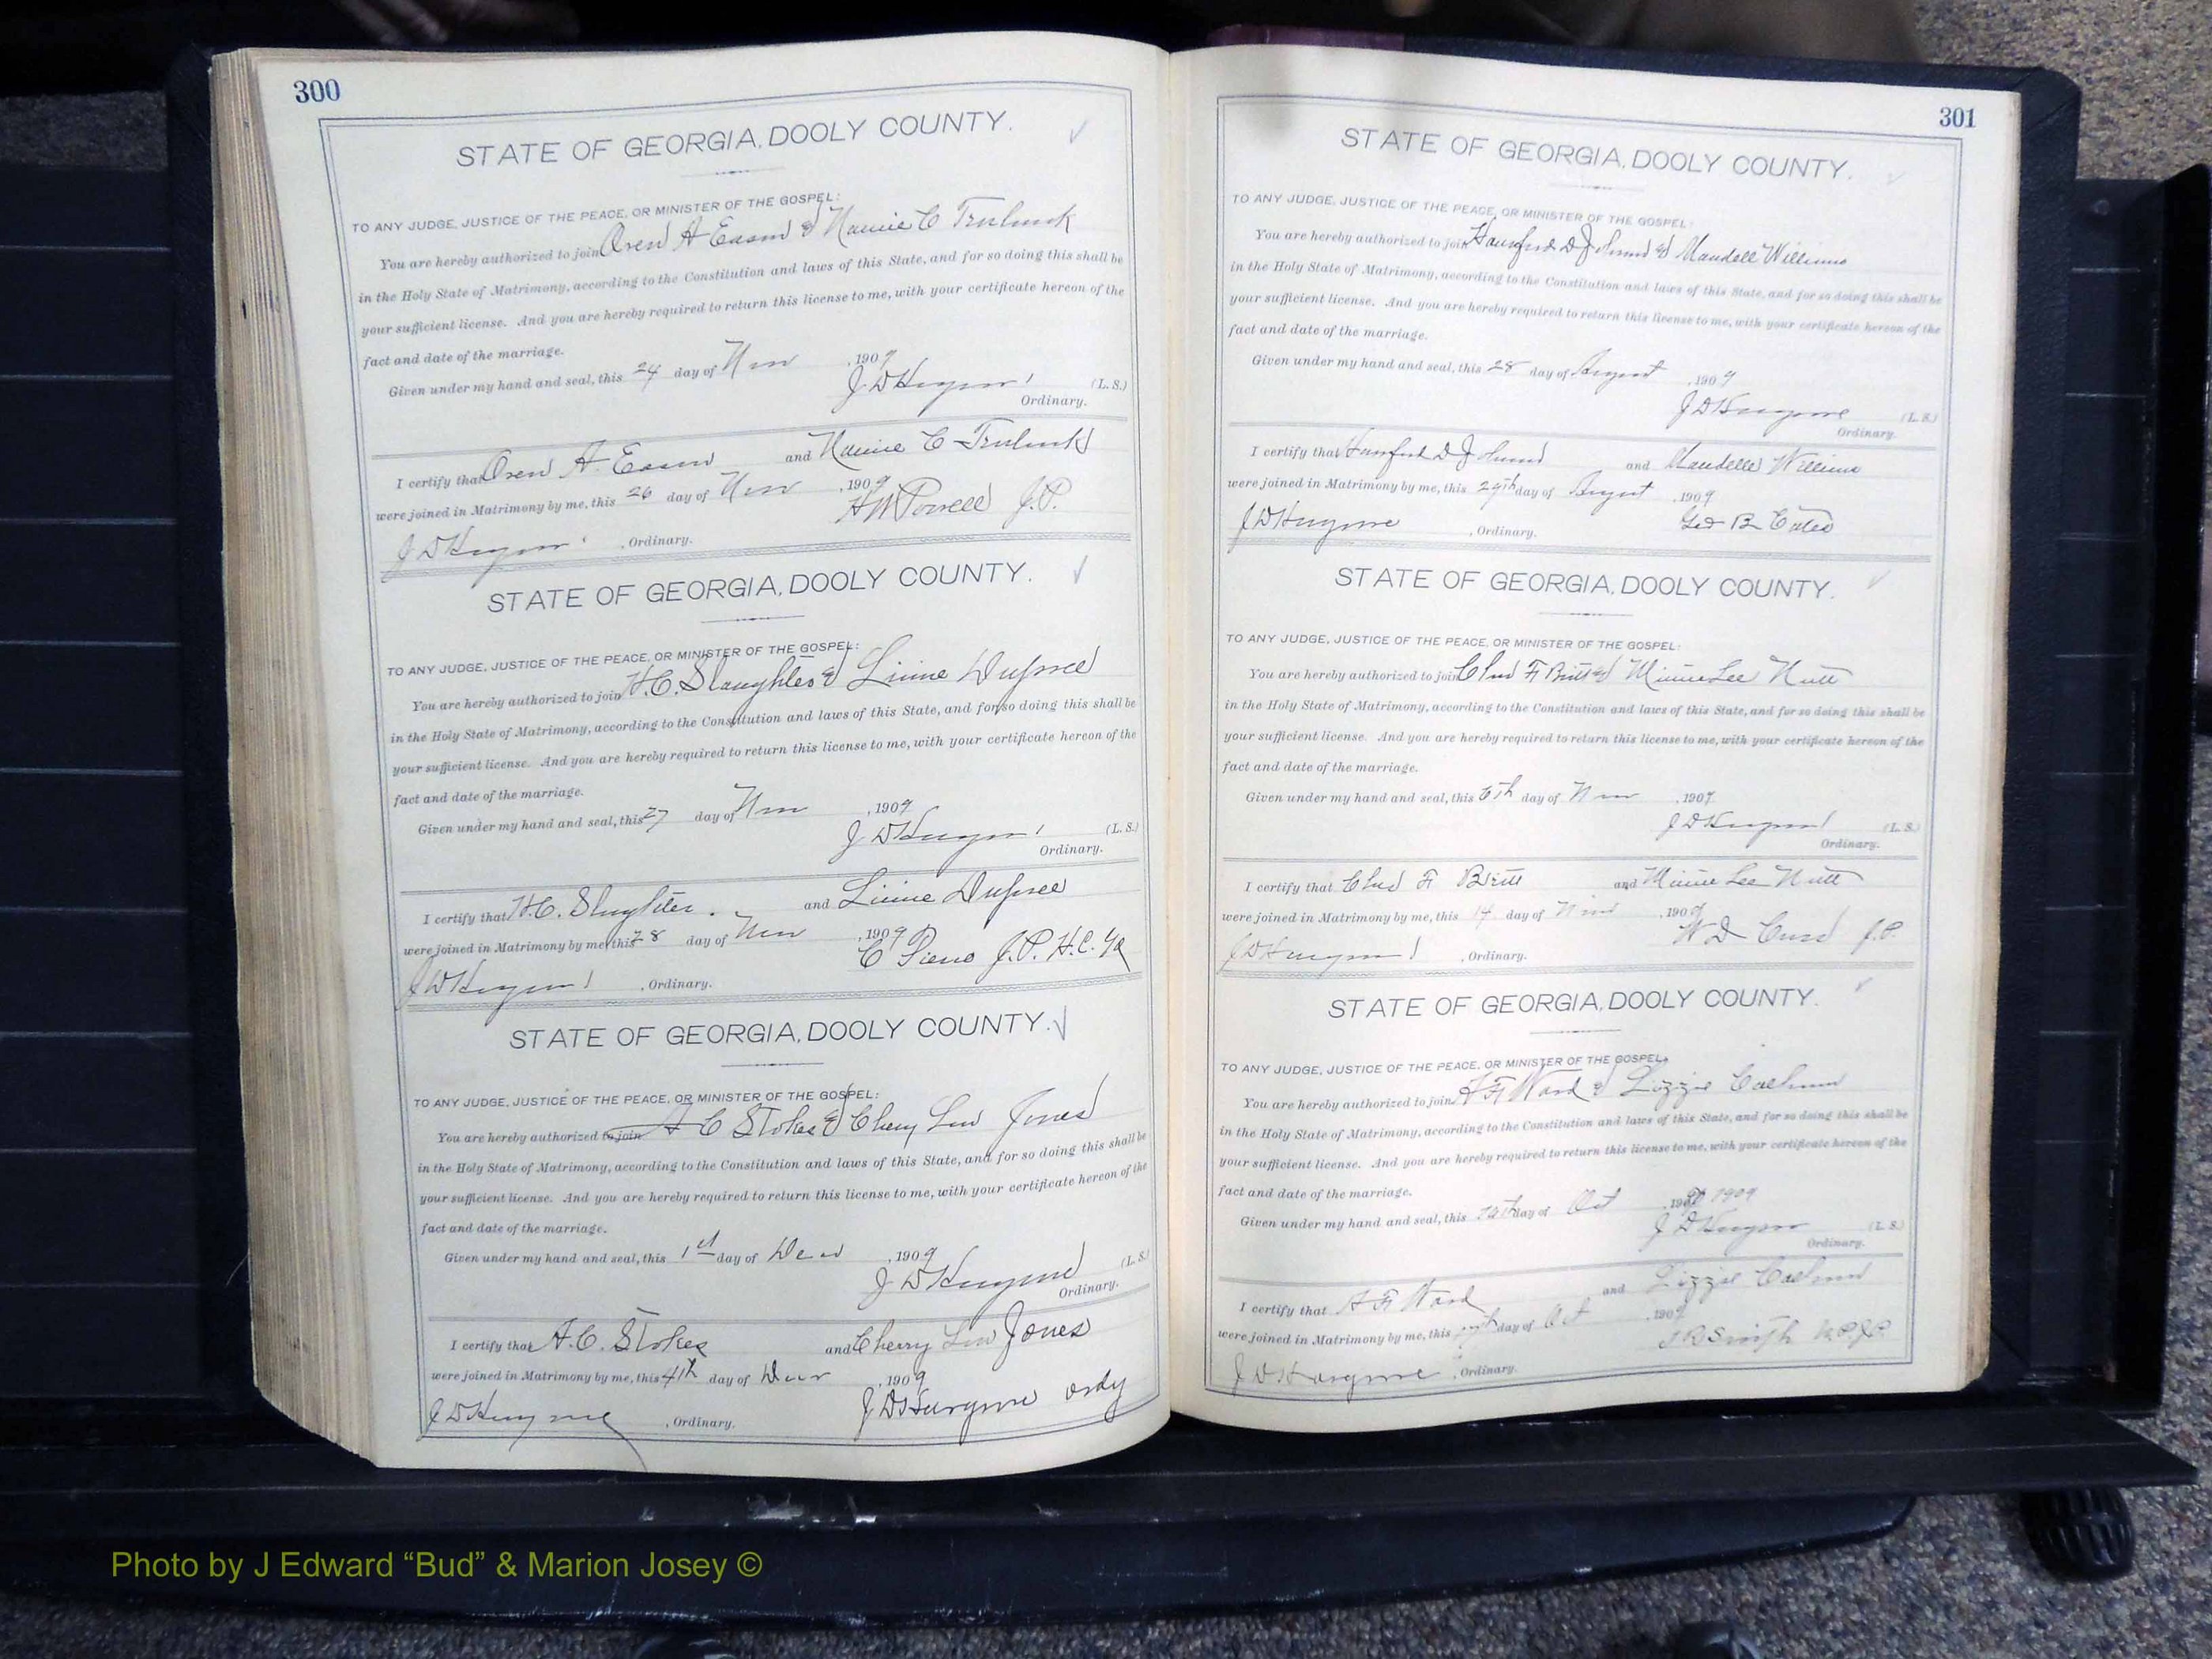 300
STATE OF GEORGIA, DOOLY COUNTY.
TO ANY JUDGE, JUSTICE OF THE PEACE, OR MINISTER OF THE GOSPEL:
You are hereby authorized to join Oren A Eason & C
in the Holy State of Matrimony, according to the Constitution and laws of this State, and for so doing this shall be
your sufficient license. And you are hereby required to return this license to me, with your certificate hereon of the
fact and date of the marriage.
Given under my hand and seal, this 24 day of Nov , 1909
J D (L. S.)
Ordinary.
I certify that Oren A. Eason and C
were joined in Matrimony by me, this 26 day of Nov , 1909
H M Powell J.P.
J D , Ordinary.
STATE OF GEORGIA, DOOLY COUNTY.
TO ANY JUDGE, JUSTICE OF THE PEACE, OR MINISTER OF THE GOSPEL:
You are hereby authorized to join H.C. Slaughter & Dupree
in the Holy State of Matrimony, according to the Constitution and laws of this State, and for so doing this shall be
your sufficient license. And you are hereby required to return this license to me, with your certificate hereon of the
fact and date of the marriage.
Given under my hand and seal, this 27 day of Nov , 1909
J D (L. S.)
Ordinary.
I certify that H.C. Slaughter. and Dupree
were joined in Matrimony by me, this 28 day of Nov , 1909
C J.P. H.C. Ga
J D , Ordinary.
STATE OF GEORGIA, DOOLY COUNTY.
TO ANY JUDGE, JUSTICE OF THE PEACE, OR MINISTER OF THE GOSPEL:
You are hereby authorized to join A C Stokes & Cherry Lou Jones
in the Holy State of Matrimony, according to the Constitution and laws of this State, and for so doing this shall be
your sufficient license. And you are hereby required to return this license to me, with your certificate hereon of the
fact and date of the marriage.
Given under my hand and seal, this 1st day of , 1909
J D (L. S.)
Ordinary.
I certify that A.C. Stokes and Cherry Lou Jones
were joined in Matrimony by me, this 4th day of , 1909
J D ordy
J D , Ordinary.
301
STATE OF GEORGIA, DOOLY COUNTY.
TO ANY JUDGE, JUSTICE OF THE PEACE, OR MINISTER OF THE GOSPEL:
You are hereby authorized to join D Johnson & Maudell Williams
in the Holy State of Matrimony, according to the Constitution and laws of this State, and for so doing this shall be
your sufficient license. And you are hereby required to return this license to me, with your certificate hereon of the
fact and date of the marriage.
Given under my hand and seal, this 28 day of August , 1909
J D (L. S.)
Ordinary.
I certify that D Johnson and Maudelle Williams
were joined in Matrimony by me, this 29th day of August , 1909
Geo B.
J D , Ordinary.
STATE OF GEORGIA, DOOLY COUNTY.
TO ANY JUDGE, JUSTICE OF THE PEACE, OR MINISTER OF THE GOSPEL:
You are hereby authorized to join F Britt & Minnie Lee Nutt
in the Holy State of Matrimony, according to the Constitution and laws of this State, and for so doing this shall be
your sufficient license. And you are hereby required to return this license to me, with your certificate hereon of the
fact and date of the marriage.
Given under my hand and seal, this day of Nov , 1909
J D (L. S.)
Ordinary.
I certify that F Britt and Minnie Lee Nutt
were joined in Matrimony by me, this 14 day of Nov , 1909
W D J.P.
J D , Ordinary.
STATE OF GEORGIA, DOOLY COUNTY.
TO ANY JUDGE, JUSTICE OF THE PEACE, OR MINISTER OF THE GOSPEL:
You are hereby authorized to join A F Ward & Lizzie Calhoun
in the Holy State of Matrimony, according to the Constitution and laws of this State, and for so doing this shall be
your sufficient license. And you are hereby required to return this license to me, with your certificate hereon of the
fact and date of the marriage.
Given under my hand and seal, this day of Oct , 1909
J D (L. S.)
Ordinary.
I certify that A F Ward and Lizzie Calhoun
were joined in Matrimony by me, this day of Oct , 1909
Smith
J D , Ordinary.
Photo by J Edward “Bud” & Marion Josey ©